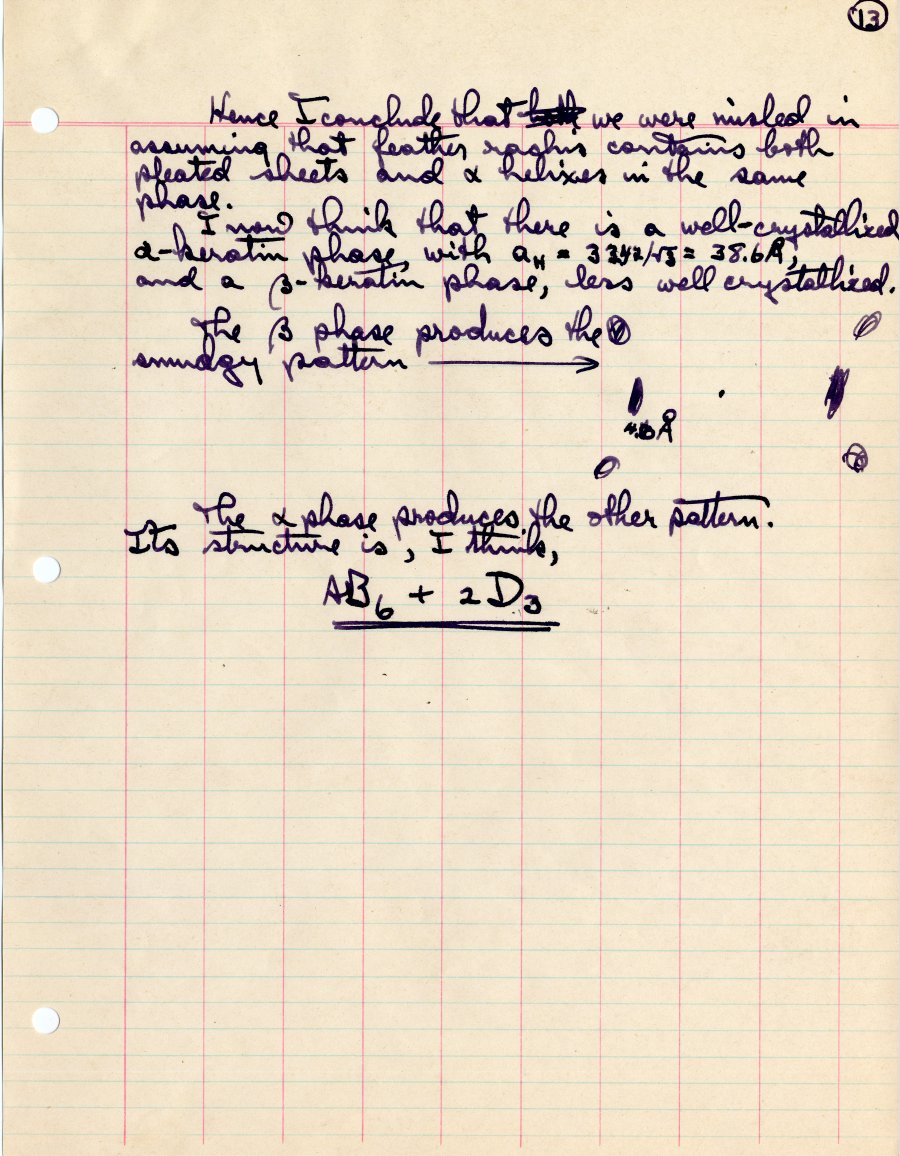 13
Hence I conclude that both we were misled in
assuming that feather rachis contains both
pleated sheets and α helixes in the same
phase.
I now think that there is a well-crystallized
α-keratin phase, with a_H = 33.42/√3 = 38.6Å,
and a β-keratin phase, less well crystallized.
The β phase produces the
smudgy pattern ⟶
Å
The α phase produces the other pattern.
Its structure is, I think,
AB₆ + 2D₃